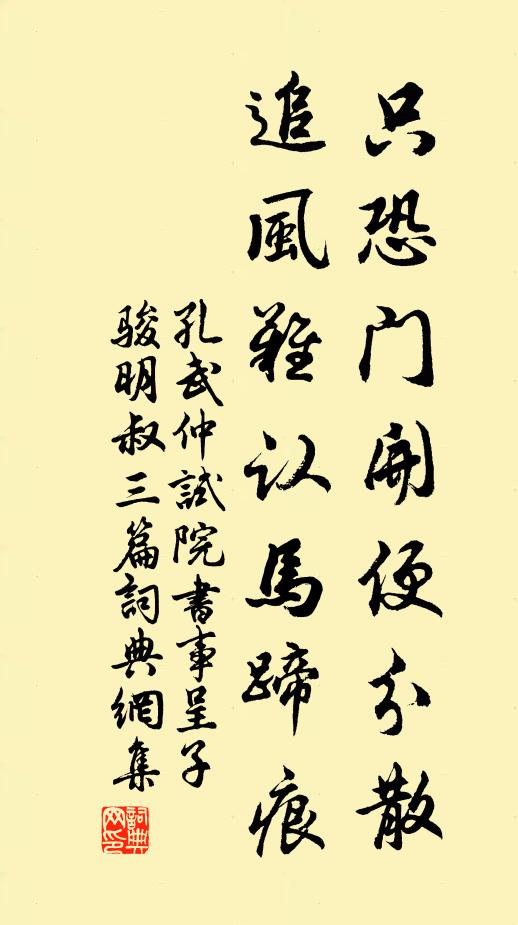 只恐门開便分散
追風難认馬蹄痕
孔武仲試院書事呈子
駿明叔三篇詞典網集
詞典网印